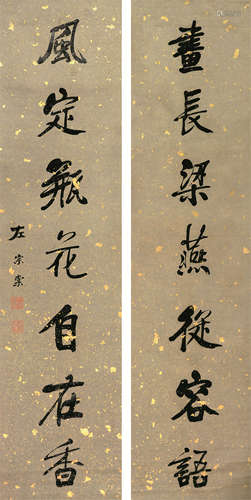 畫長梁燕從容語
風定瓶花自在香
左宗棠